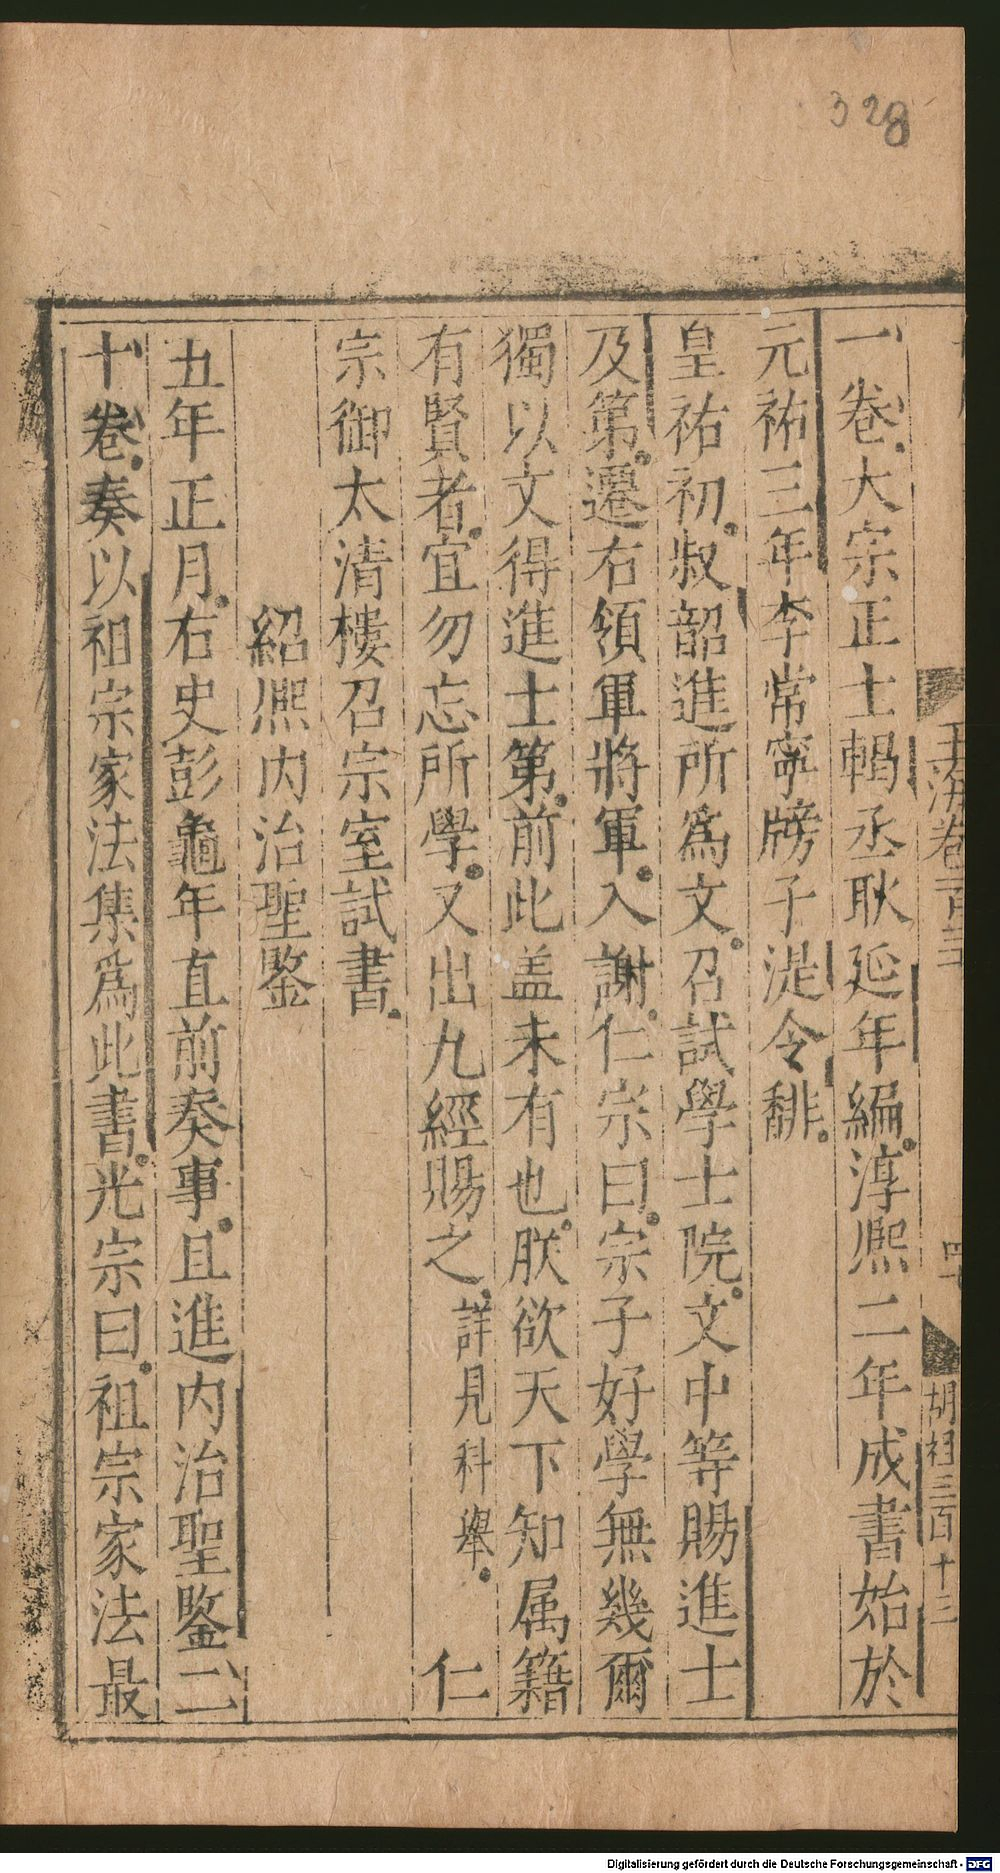 328
一卷大宗正士輵丞耿延年編淳熙二年成書始於
元祐三年李常寧牓子湜令緋
皇祐初叔韶進所爲文召試學士院文中等賜進士
及第遷右領軍將軍入謝仁宗曰宗子好學無幾爾
獨以文得進士第前此盖未有也朕欲天下知属籍
有賢者宜勿忘所學又出九經賜之詳見科舉 仁
宗御太清樓召宗室試書
紹熙内治聖鑒
五年正月右史彭龜年直前奏事且進内治聖鑒二
十卷奏以祖宗家法集爲此書光宗曰祖宗家法最
胡祖三百十三
Digitalisierung gefördert durch die Deutsche Forschungsgemeinschaft - DFG